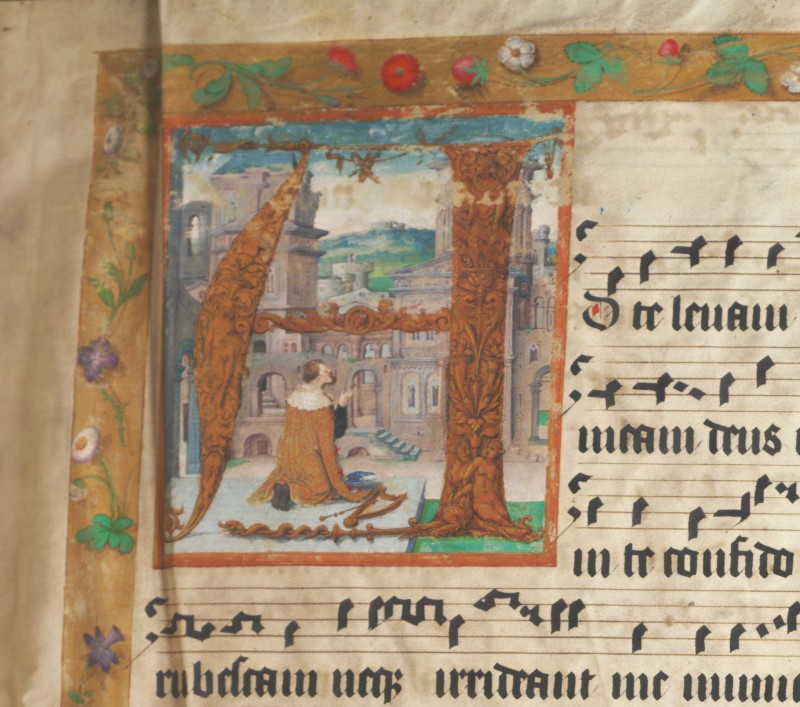 A
D te leuaui
meam deus
in te confido
rubescam neq irrideant me inimi